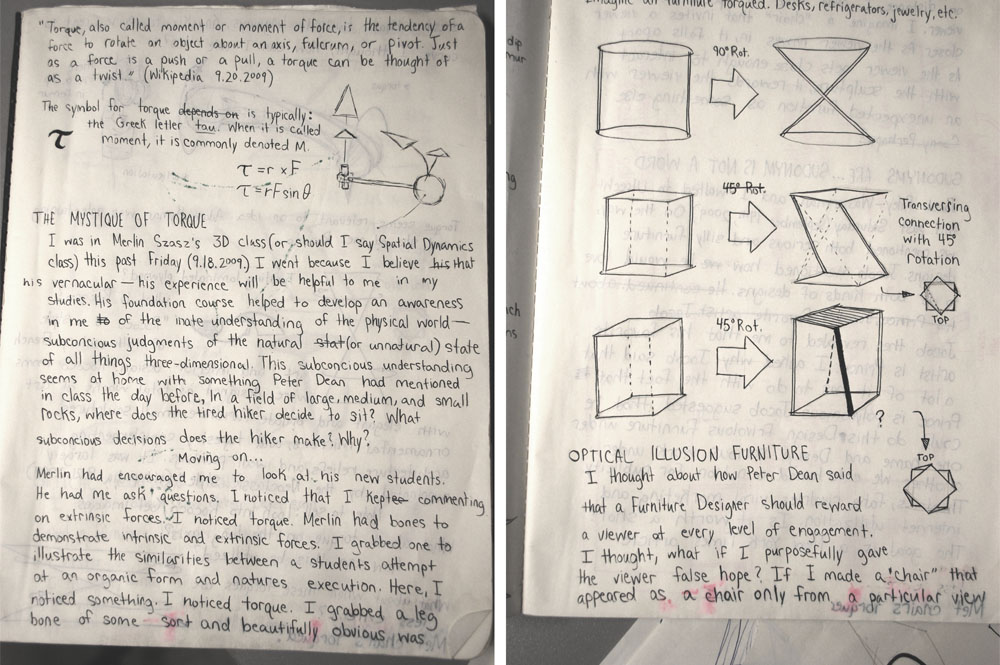 "Torque, also called moment or moment of force, is the tendency of a
force to rotate an object about an axis, fulcrum, or pivot. Just
as a force is a push or a pull, a torque can be thought of
as a twist." (Wikipedia 9.20.2009)
The symbol for torque depends on is typically:
the Greek letter tau. When it is called
moment, it is commonly denoted M.
τ
τ = r x F
τ = rF sin θ
THE MYSTIQUE OF TORQUE
I was in Merlin Szasz's 3D class (or should I say Spatial Dynamics
class) this past Friday (9.18.2009.) I went because I believe his that
his vernacular — his experience will be helpful to me in my
studies. His foundation course helped to develop an awareness
in me to of the inate understanding of the physical world—
subconcious judgments of the natural stat (or unnatural) state
of all things three-dimensional. This subconcious understanding
seems at home with something Peter Dean had mentioned
in class the day before, In a field of large, medium, and small
rocks, where does the tired hiker decide to sit? What
subconcious decisions does the hiker make? Why?
Moving on...
Merlin had encouraged me to look at his new students.
He had me ask questions. I noticed that I kepte commenting
on extrinsic forces. I noticed torque. Merlin had bones to
demonstrate intrinsic and extrinsic forces. I grabbed one to
illustrate the similarities between a students attempt
at an organic form and natures execution. Here, I
noticed something. I noticed torque. I grabbed a leg
bone of some sort and beautifully obvious was
Imagine all furniture torqued. Desks, refrigerators, jewelry, etc.
90° Rot.
45° Rot.
Transversing
connection
with 45°
rotation
TOP
45° Rot.
?
TOP
OPTICAL ILLUSION FURNITURE
I thought about how Peter Dean said
that a Furniture Designer should reward
a viewer at every level of engagement.
I thought, what if I purposefully gave
the viewer false hope? If I made a "chair" that
appeared as a chair only from a particular view